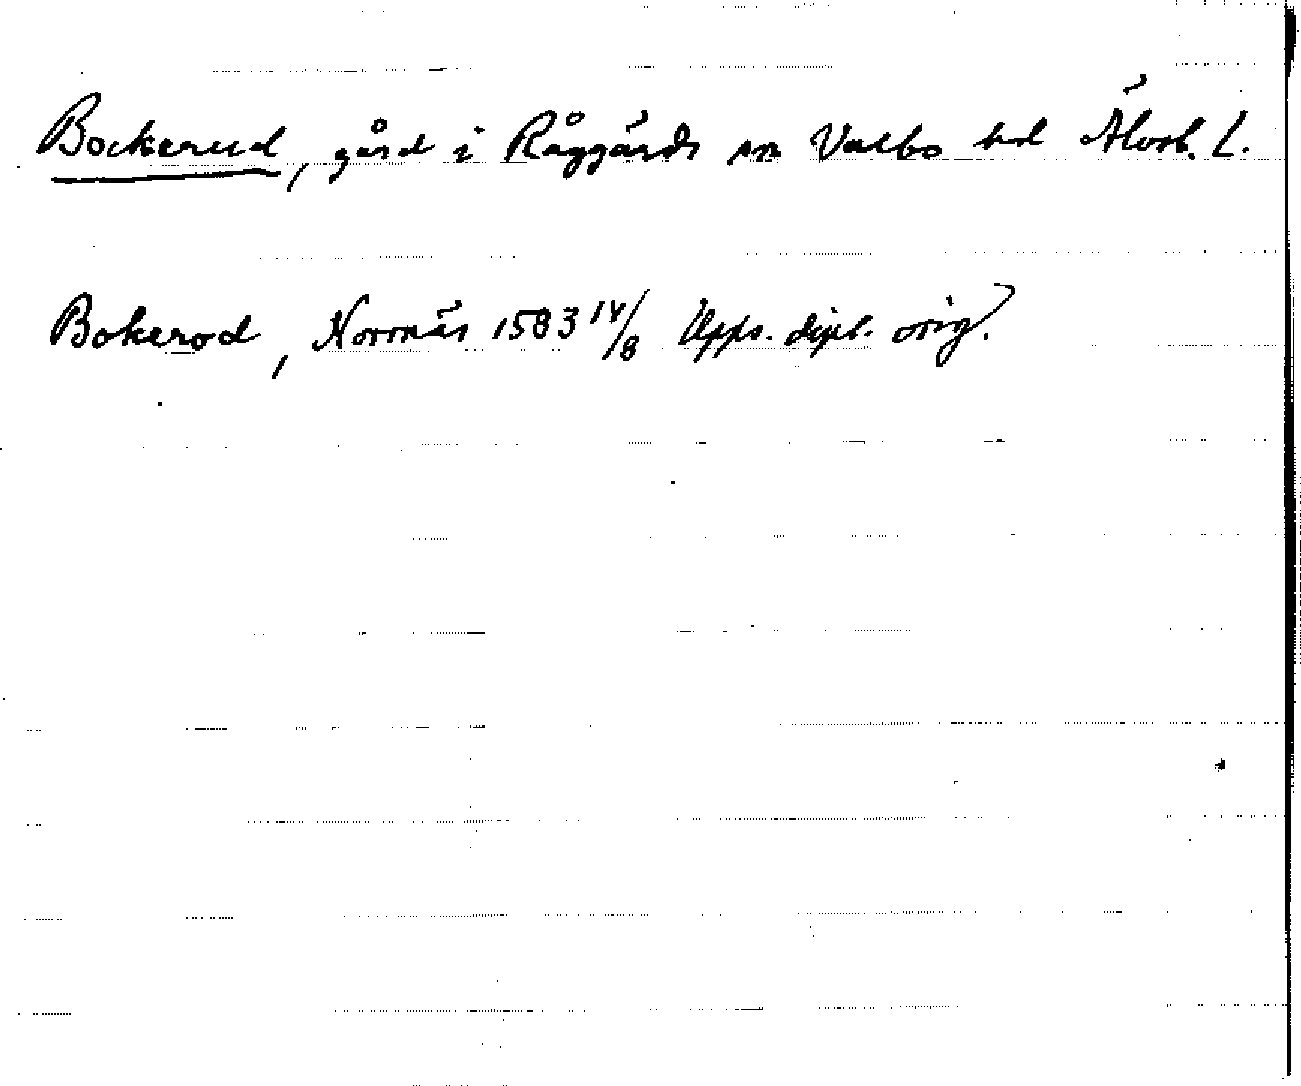 Bockerud, gård i Råggärds sn Valbo hd Älvsb. L.
Bokerod, Norrnäs 1583 14/8 Upps. dipl. orig.